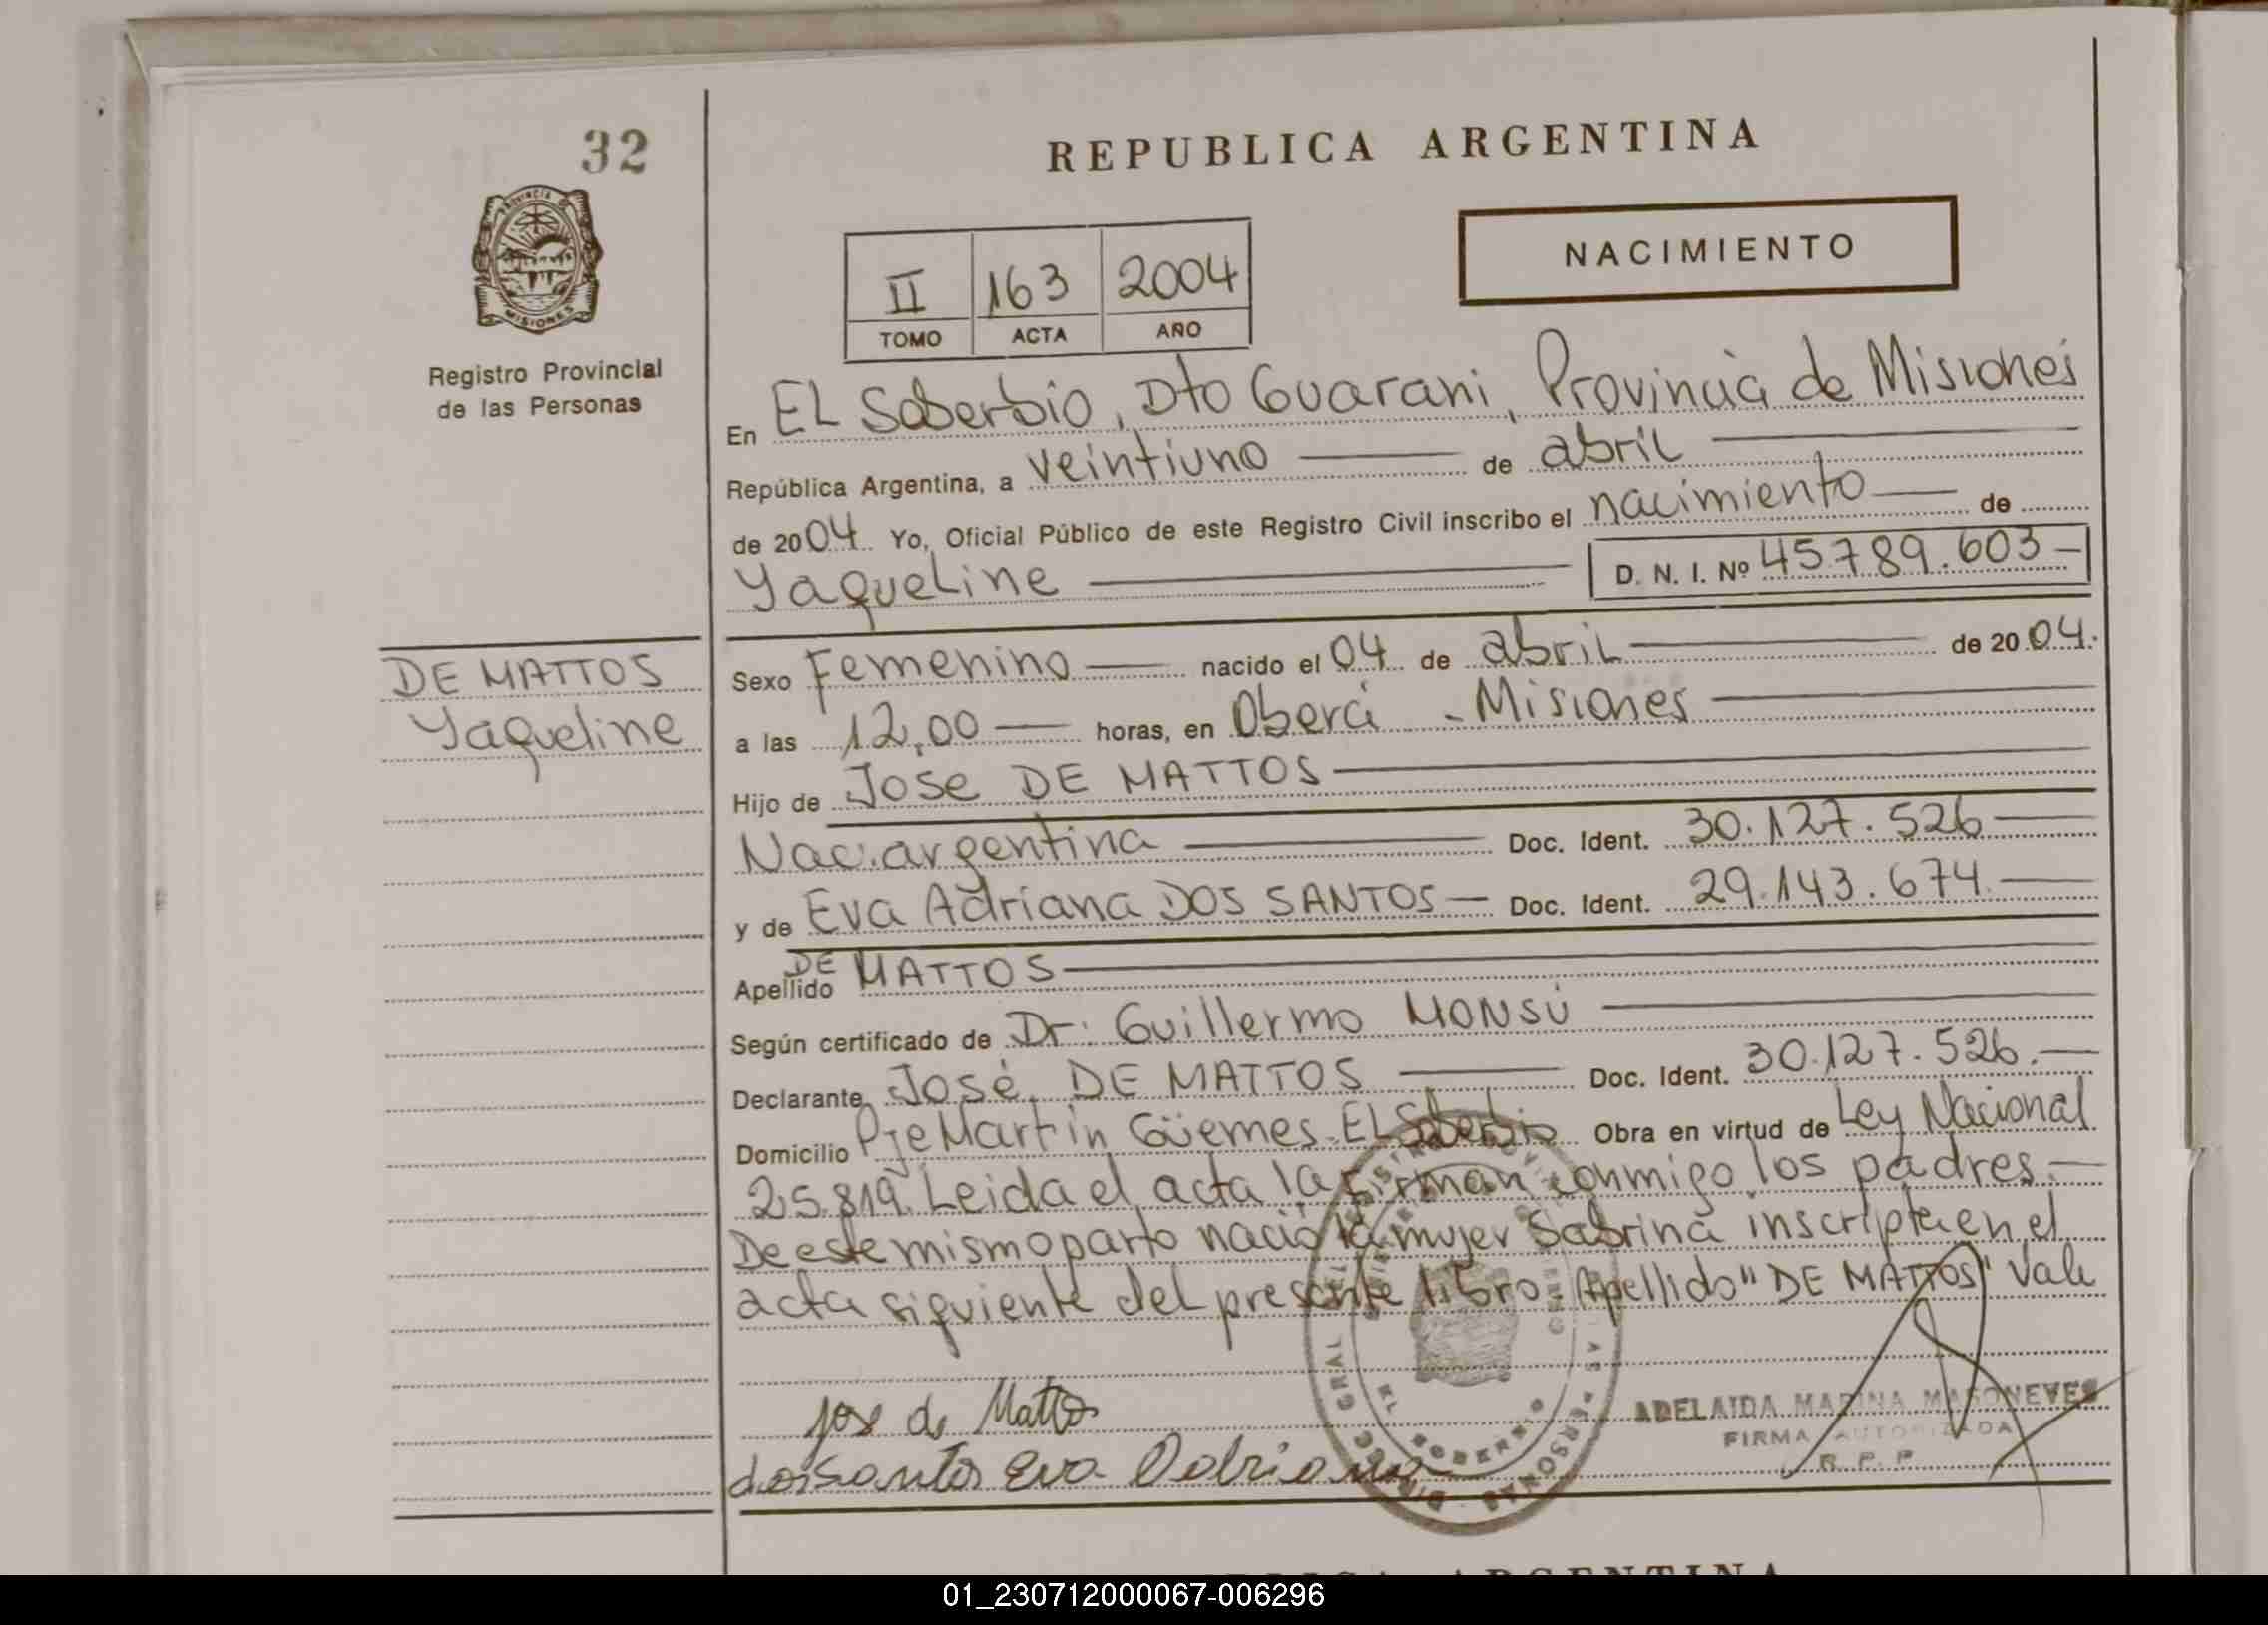 32
REPUBLICA ARGENTINA
NACIMIENTO
II 163 2004
TOMO ACTA AÑO
PROVINCIA MISIONES
Registro Provincial
de las Personas
En EL Soberbio, Dto Guarani, Provincia de Misiones
República Argentina, a veintiuno de abril
de 2004 Yo, Oficial Público de este Registro Civil inscribo el nacimiento de
Yaqueline D. N. I. Nº 45.789.603
DE MATTOS
Yaqueline
Sexo Femenino nacido el 04 de abril de 2004.
a las 12,00 horas, en Oberá - Misiones
Hijo de Jose DE MATTOS
Nac. argentina Doc. Ident. 30.127.526
y de Eva Adriana DOS SANTOS Doc. Ident. 29.143.674.
Apellido DE MATTOS
Según certificado de Dr. Guillermo MONSÚ
Declarante José DE MATTOS Doc. Ident. 30.127.526.
Domicilio Pje Martín Güemes - EL Soberbio Obra en virtud de Ley Nacional
25.819. Leida el acta la firman conmigo los padres.
De este mismo parto nació la mujer Sabrina inscripta en el
acta siguiente del presente libro. Apellido "DE MATTOS" Vale
jose de Mattos
dos Santos Eva Adriana
ADELAIDA MARINA MASONEVES
FIRMA AUTORIZADA
R.P.P
EL SOBERBIO
REPUBLICA ARGENTINA
01_230712000067-006296